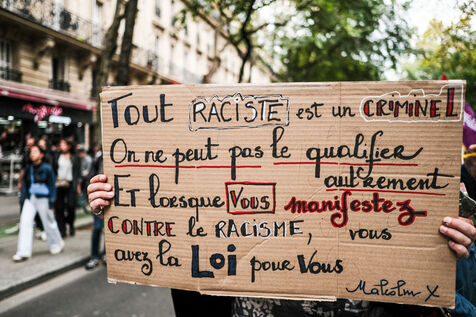 Tout RACISTE est un CRIMINEL
On ne peut pas le qualifier
autrement
Et lorsque Vous manifestez
CONTRE le RACISME, vous
avez la Loi pour Vous
Malcolm X